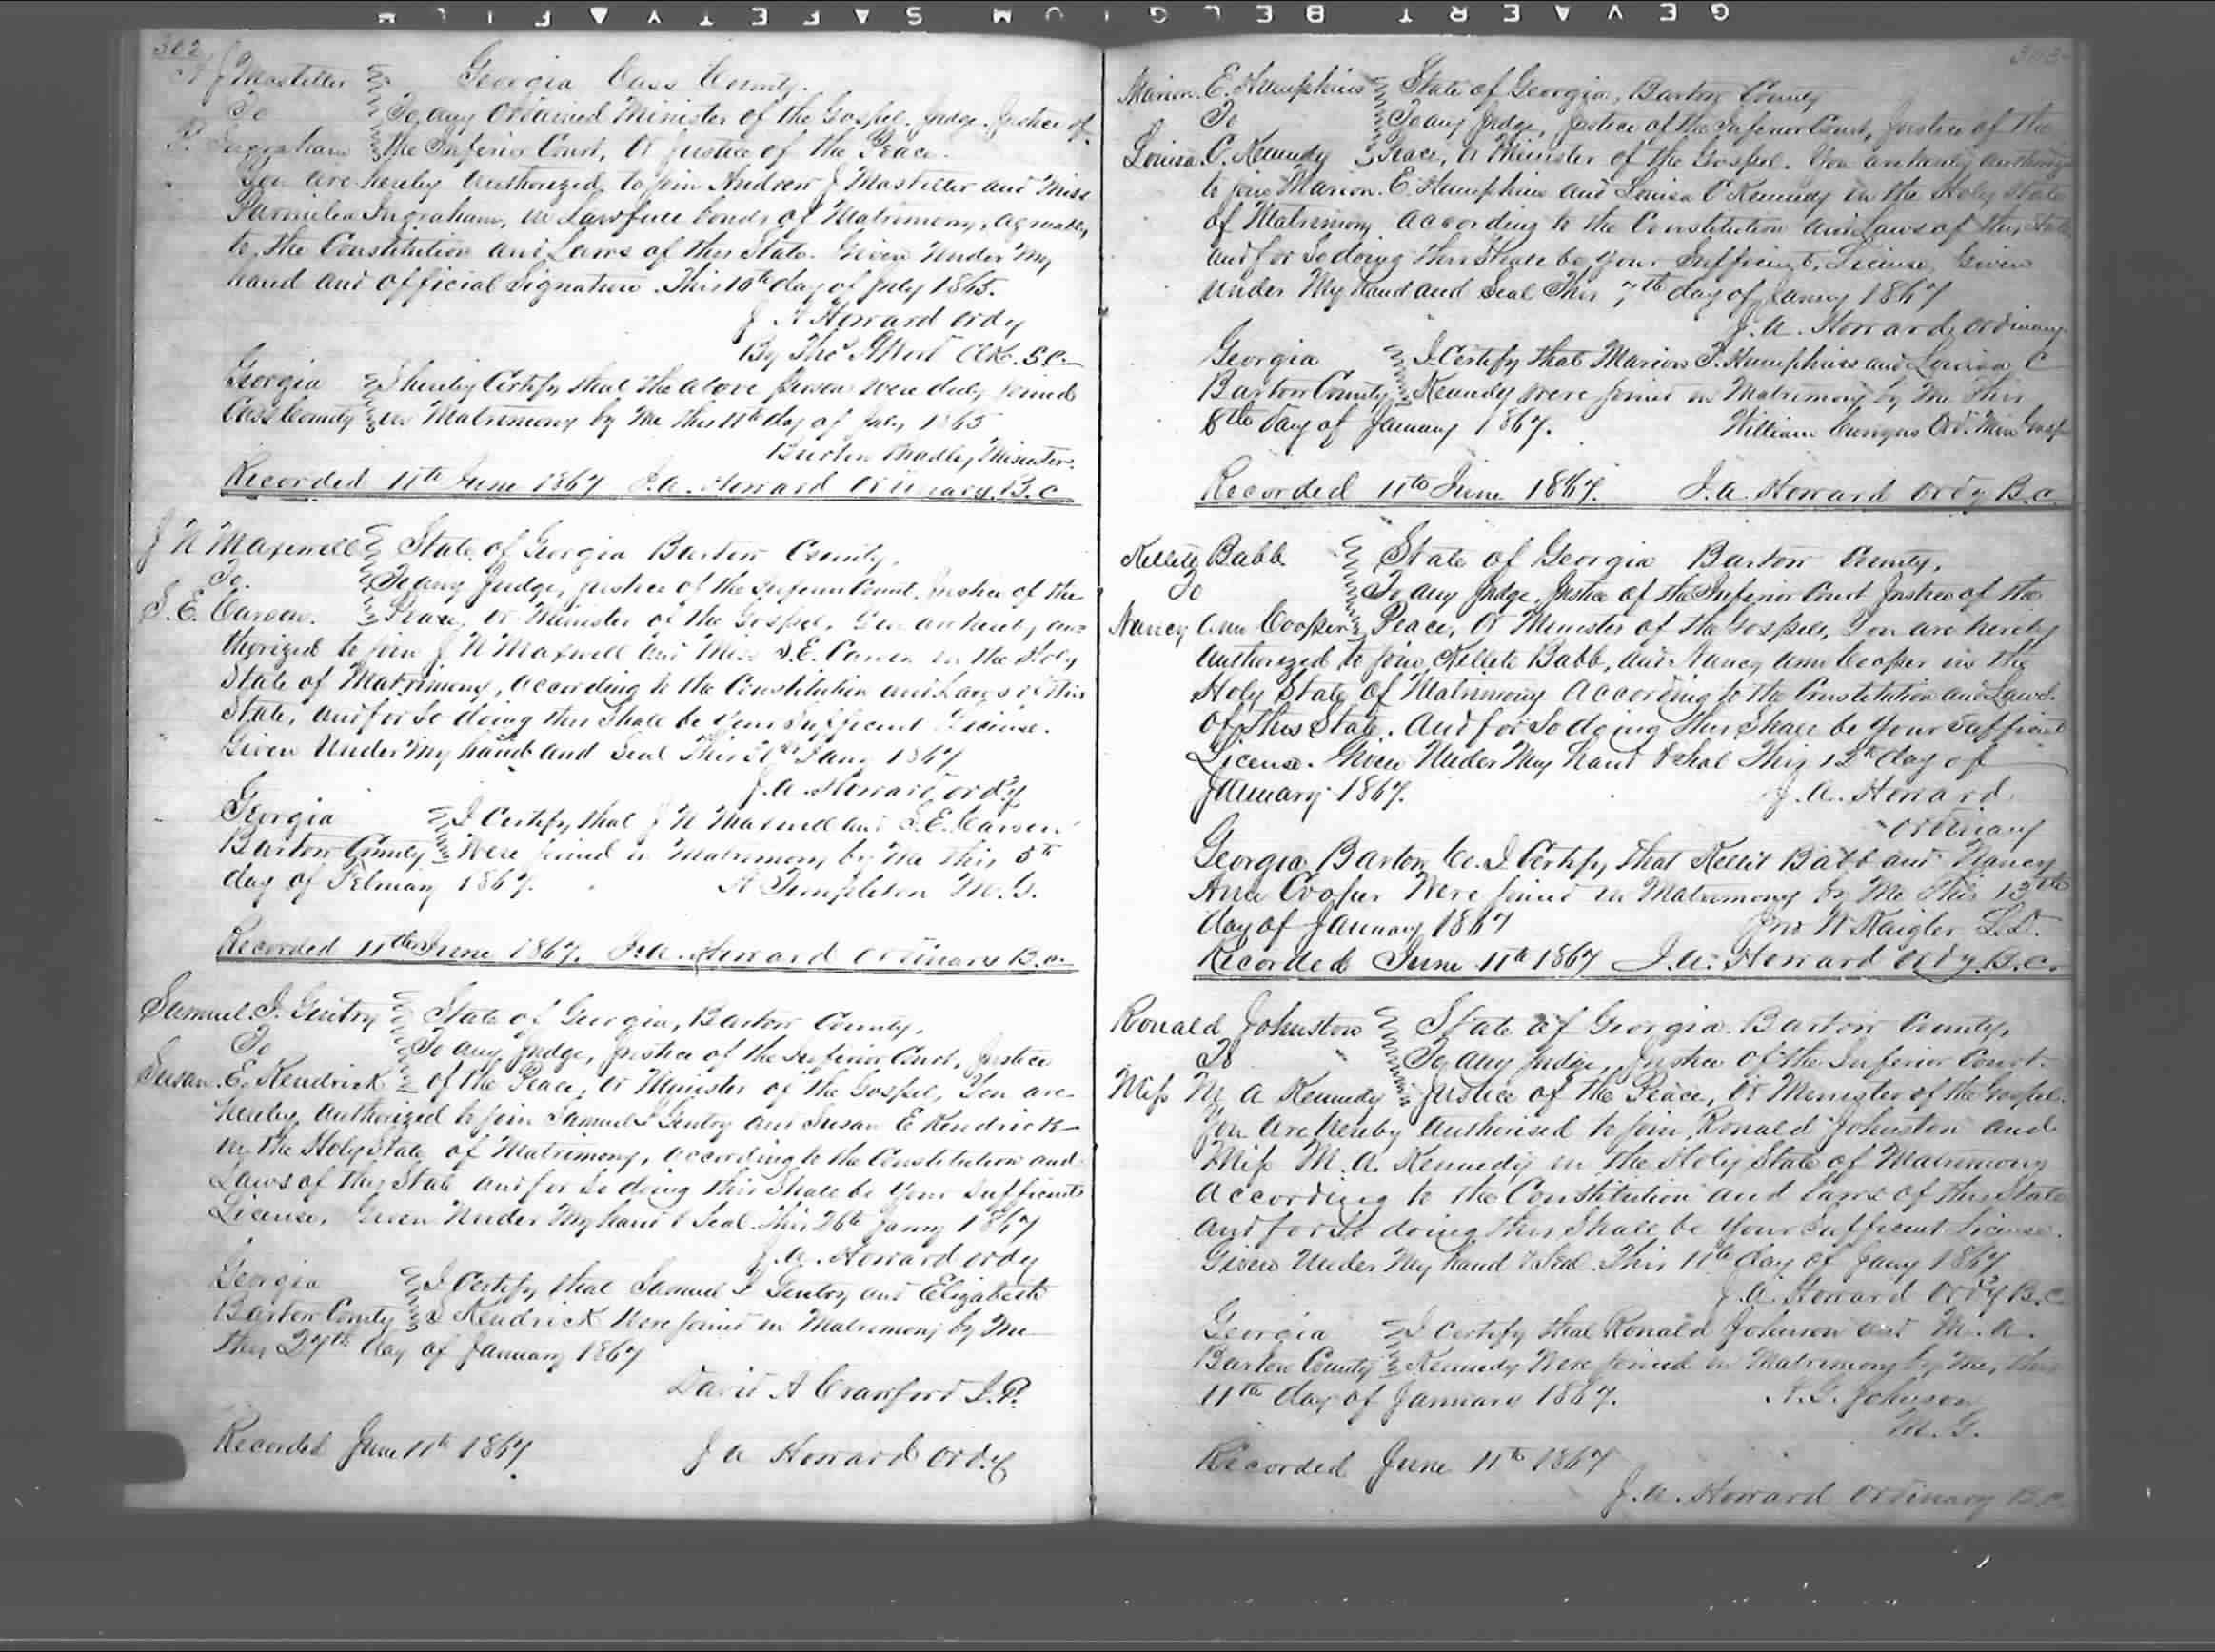 GEVAERT BELGIUM SAFETY FILM
302
A J Mosteller Georgia Cass County.
To To any Ordained Minister of the Gospel, Judge, Justice of
P. Ingraham the Inferior Court, Or Justice of the Peace.
You are hereby Authorized to join Andrew J Mosteller and Miss
Ingraham, in Lawfull bonds of Matrimony, agreeably
to the Constitution and Laws of this State. Given Under My
hand and official Signature. This 10th day of July 1865.
J A Howard Ordy
By Thos Clk. S.C.
Georgia I hereby Certify that the above person were duly joined
Cass County in Matrimony by Me this 11th day of July 1865
Minister.
Recorded 11th June 1867 J.A. Howard Ordinary B.C
J N Maxwell State of Georgia Bartow County.
To. To any Judge, justice of the Inferior Court, Justice of the
S. E. Carson. Peace, Or Minister of the Gospel, You are hereby au=
thorized to join J N Maxwell and Miss S.E. Carson in the Holy
State of Matrimony, according to the Constitution and Laws of this
State, and for So doing this Shall be Your Sufficient License.
Given Under My hand and Seal This 31st Jany 1867
J.A. Howard, ordy
Georgia I Certify that J N Maxwell and S.E. Carson
Bartow County Were joined in Matrimony by Me this 5th
day of Febuary 1867. A Templeton M.G.
Recorded 11th June 1867. J.A. Howard Ordinary B.C.
Samuel I. Gentry State of Georgia, Bartow County.
To To any Judge, Justice of the Inferior Court, Justice
Susan E. Kendrick of the Peace, Or Minister of the Gospel, You are
hereby Authorized to join Samuel I Gentry and Susan E Kendrick
in the Holy State of Matrimony, according to the Constitution and
Laws of this State and for So doing this Shall be Your Sufficient
License. Given Under My hand & Seal This 26th Jany 1867
J.A. Howard ordy
Georgia I Certify that Samuel I Gentry and Elizabeth
Bartow County S Kendrick Were joined in Matrimony by Me
this 27th day of January 1867
David A Crawford J.P.
Recorded June 11th 1867. J A Howard Ordy
303
Marion E. Humphries State of Georgia, Bartow County
To To any Judge, Justice of the Inferior Court, Justice of the
Louisa C. Kennedy Peace, Or Minister of the Gospel. You are hereby authorize
to join Marion E. Humphries and Louisa C Kennedy in the Holy State
of Matrimony according to the Constitution and Laws of this State
and for So doing this Shall be Your Sufficient License, Given
Under My hand and Seal This 7th day of Janry 1867
J.A. Howard, Ordinary
Georgia I Certify that Marion F. Humphries and Louisa C
Bartow County Kennedy were joined in Matrimony by me this
8th day of January 1867. William Ord. Min Gosp
Recorded 11th June 1867. J.A. Howard Ordy B.C.
Kellete Babb State of Georgia Bartow County.
To To any Judge, Justice of the Inferior Court Justice of the
Nancy Ann Cooper Peace, Or Minister of the Gospell, You are hereby
authorized to join Kellete Babb, and Nancy Ann Cooper in the
Holy State of Matrimony According to the Constitution and Laws
of this State. And for So doing this Shall be Your Sufficient
License. Given Under My hand & Seal This 12th day of
January 1867. J.A. Howard
Ordinary
Georgia Bartow Co. I Certify that Kellit Babb and Nancy
Ann Cooper Were joined in Matrimony by Me this 13th
day of January 1867 Jno W Kaigler L.D.
Recorded June 11th 1867 J.A. Howard Ordy. B.C.
Ronald Johnston State of Georgia Bartow County,
To To any Judge, Justice of the Inferior Court.
Miss M A Kennedy Justice of the Peace, Or Minister of the Gospel.
You Are hereby authorised to join Ronald Johnston and
Miss M.A. Kennedy in the Holy State of Matrimony
according to the Constitution and Laws of this State
and for So doing this Shall be Your Sufficient License.
Given Under My hand & Seal This 11th day of Jany 1867
J.A. Howard Ordy B.C.
Georgia I Certify that Ronald Johnson and M.A.
Bartow County Kennedy Were joined in Matrimony by Me, this
11th day of January 1867. A.G. Johnson
M.G.
Recorded June 11th 1867
J.A. Howard Ordinary B.C.